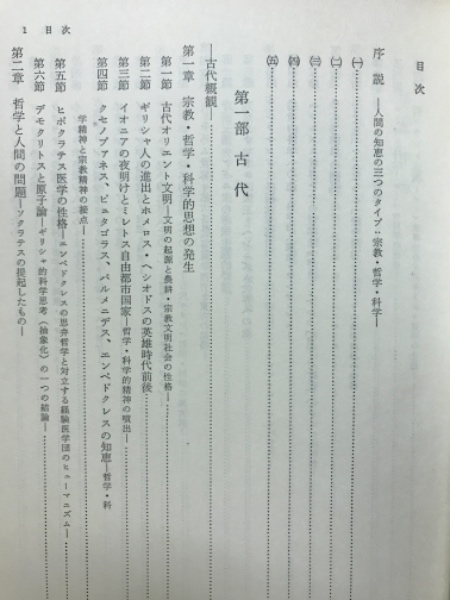 目次
序説 ―人間の知恵の三つのタイプ：宗教・哲学・科学―
㈠
㈡
㈢
㈣
㈤
第一部 古代
―古代概観―
第一章 宗教・哲学・科学的思想の発生
第一節 古代オリエント文明―文明の起源と農耕・宗教文明社会の性格―
第二節 ギリシャ人の進出とホメロス・ヘシオドスの英雄時代前後
第三節 イオニアの夜明けとミレトス自由都市国家―哲学・科学的精神の噴出―
第四節 クセノプァネス、ピュタゴラス、パルメニデス、エンペドクレスの知恵―哲学・科
学精神と宗教精神の接点―
第五節 ヒポクラテス医学の性格―エンペドクレスの思弁哲学と対立する経験医学団のヒューマニズム―
第六節 デモクリトスと原子論―ギリシャ的科学思考（抽象化）の一つの結論―
第二章 哲学と人間の問題―ソクラテスの提起したもの―
1 目次